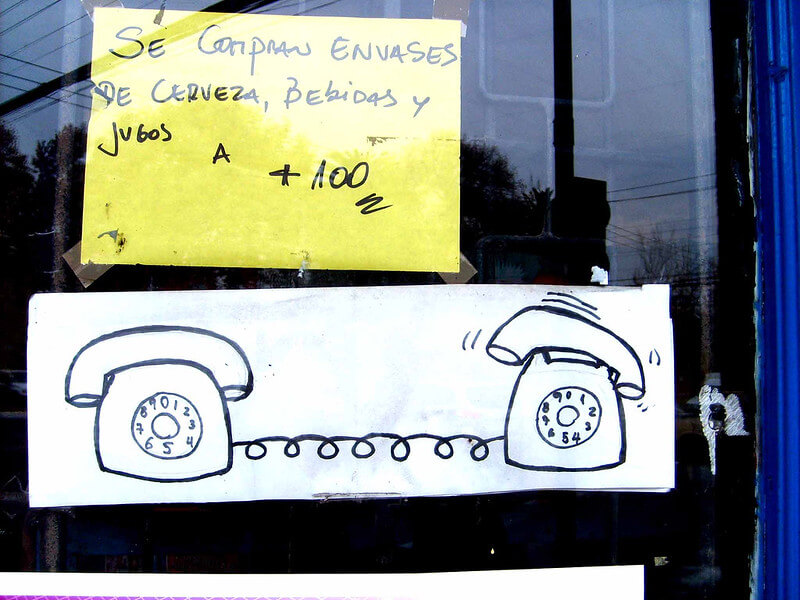 SE COMPRAN ENVASES
DE CERVEZA, BEBIDAS Y
JUGOS A + 100
8 9 0 1 2 3 4 5 6 7
8 9 0 1 2 3 4 5 6 7